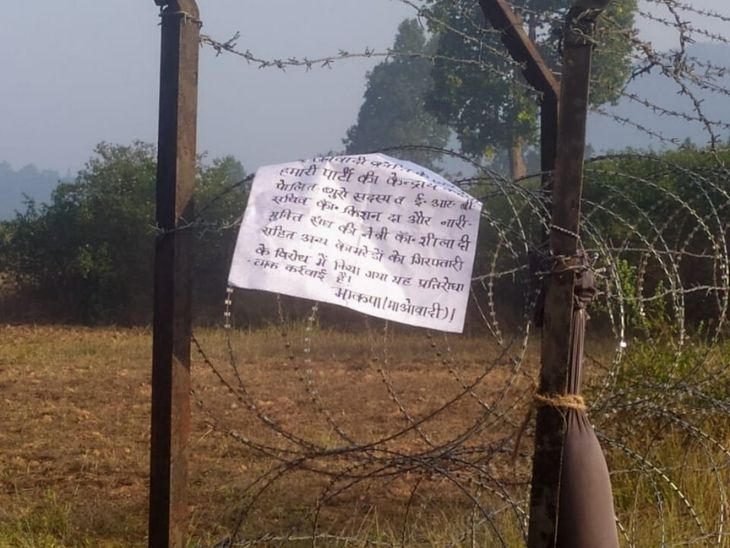 हमारी पार्टी की केन्द्रीय
पोलित ब्यूरो सदस्य व ई॰आर॰बी
सचिव का॰ किसान दा और नारी-
मुक्ति संघ की नेत्री का॰ शीला दी
सहित अन्य कामरेडों का गिरफ्तारी
के विरोध में किया गया यह प्रतिरोधा
-त्मक कार्रवाई है।
भाकपा(माओवादी)।